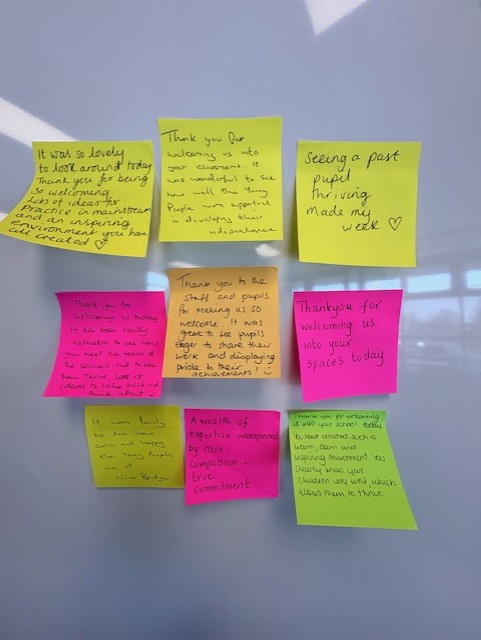 It was so lovely
to look around today
Thank you for being
so welcoming
Lots of ideas for
practice in mainstream
and an inspiring
environment you have
all created ♡
Thank you for
welcoming us into
your classrooms. It
was wonderful to see
how well the Young
People were supported
in developing their
independence
Seeing a past
pupil
thriving
made my
week ♡
Thank you for
welcoming us today
It has been really
valuable to see how
you meet the needs of
the learners and to see
them thrive. Lots of
ideas to take back and
think about
Thank you to the
staff and pupils
for making us so
welcome. It was
great to see pupils
eager to share their
work and displaying
pride in their
achievements!
Thankyou for
welcoming us
into your
spaces today
It was lovely
to see how
calm and happy
the Young People
are at
New Bridge
A wealth of
expertise underpinned
by care,
compassion +
true
commitment
Thank you for welcoming
us into your school today
You have created such a
warm, calm and
inspiring environment. You
clearly know your
children very well which
allows them to thrive